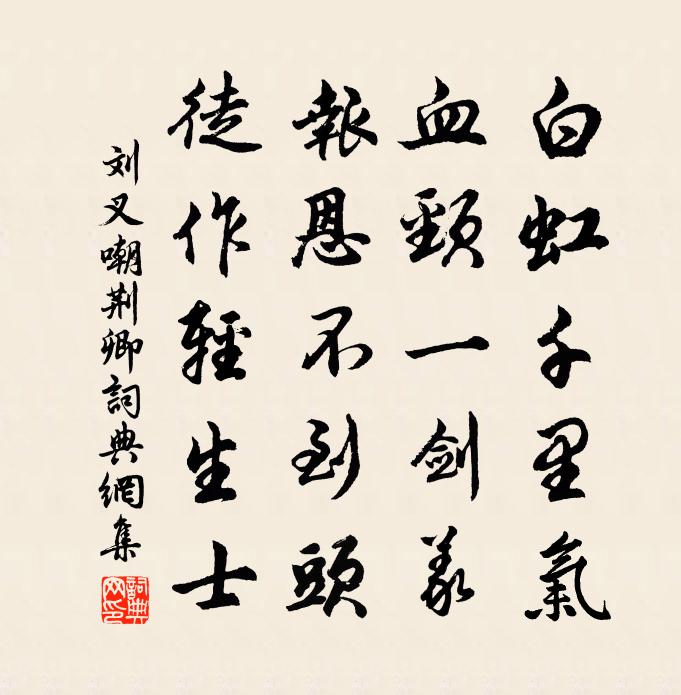 白虹千里氣
血頸一剑義
報恩不到頭
徒作輕生士
刘叉嘲荆卿詞典網集
詞典网印